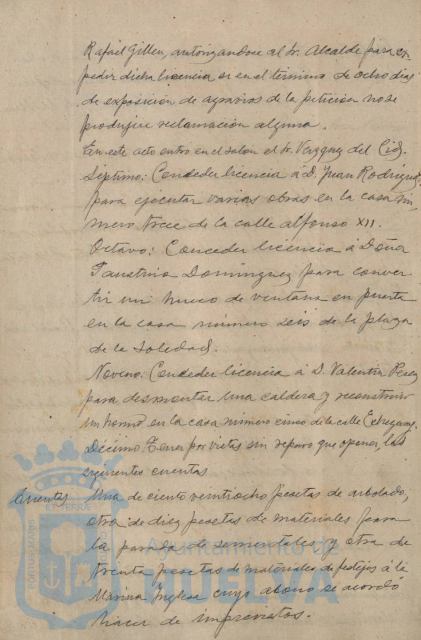 Rafael Gillen, autorizandose al Sr. Alcalde para ex-
pedir dicha licencia, si en el término de ocho dias
de exposición de agravios de la petición no se
produjere reclamación alguna.
En este acto entro en el salón el Sr. Vazquez del Cid.
Séptimo: Conceder licencia á D. Juan Rodriguez
para ejecutar varias obras en la casa nú-
mero trece de la calle Alfonso XII.
Octavo: Conceder licencia á Doña
Faustina Dominguez para conver-
tir un hueco de ventana en puerta
en la casa número seis de la plaza
de la Soledad.
Noveno: Conceder licencia á D. Valentin Perez
para desmontar una caldera y reconstruir
un horno en la casa número cinco de la calle
Décimo: Tener por vistas sin reparo que oponer, las
siguientes cuentas
Cuentas Una de ciento veintiocho pesetas de arbolado,
otra de diez pesetas de materiales para
la parada de sementales y otra de
treinta pesetas de materiales de festejos á la
Marina Inglesa cuyo abono se acordó
hacer de imprevistos.
PORTUS MARIS
ET TERRAE
CUSTODIA
Ayuntamiento de
HUELVA